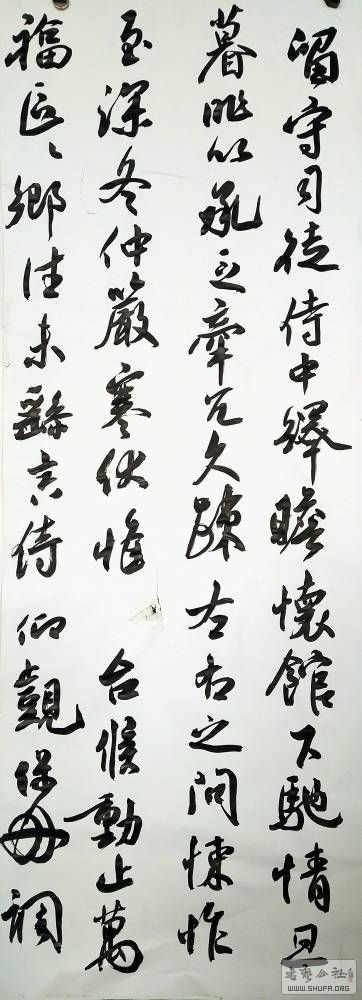 留守司徒侍中繹瞻懷館下馳情旦
暮以乏牽冗久疎左右之問悚怍
至深冬仲嚴寒伏惟 台候動止萬
福區〻鄉往未繇言侍仰覬保毋詞
書藝公社
WWW.SHUFA.ORG